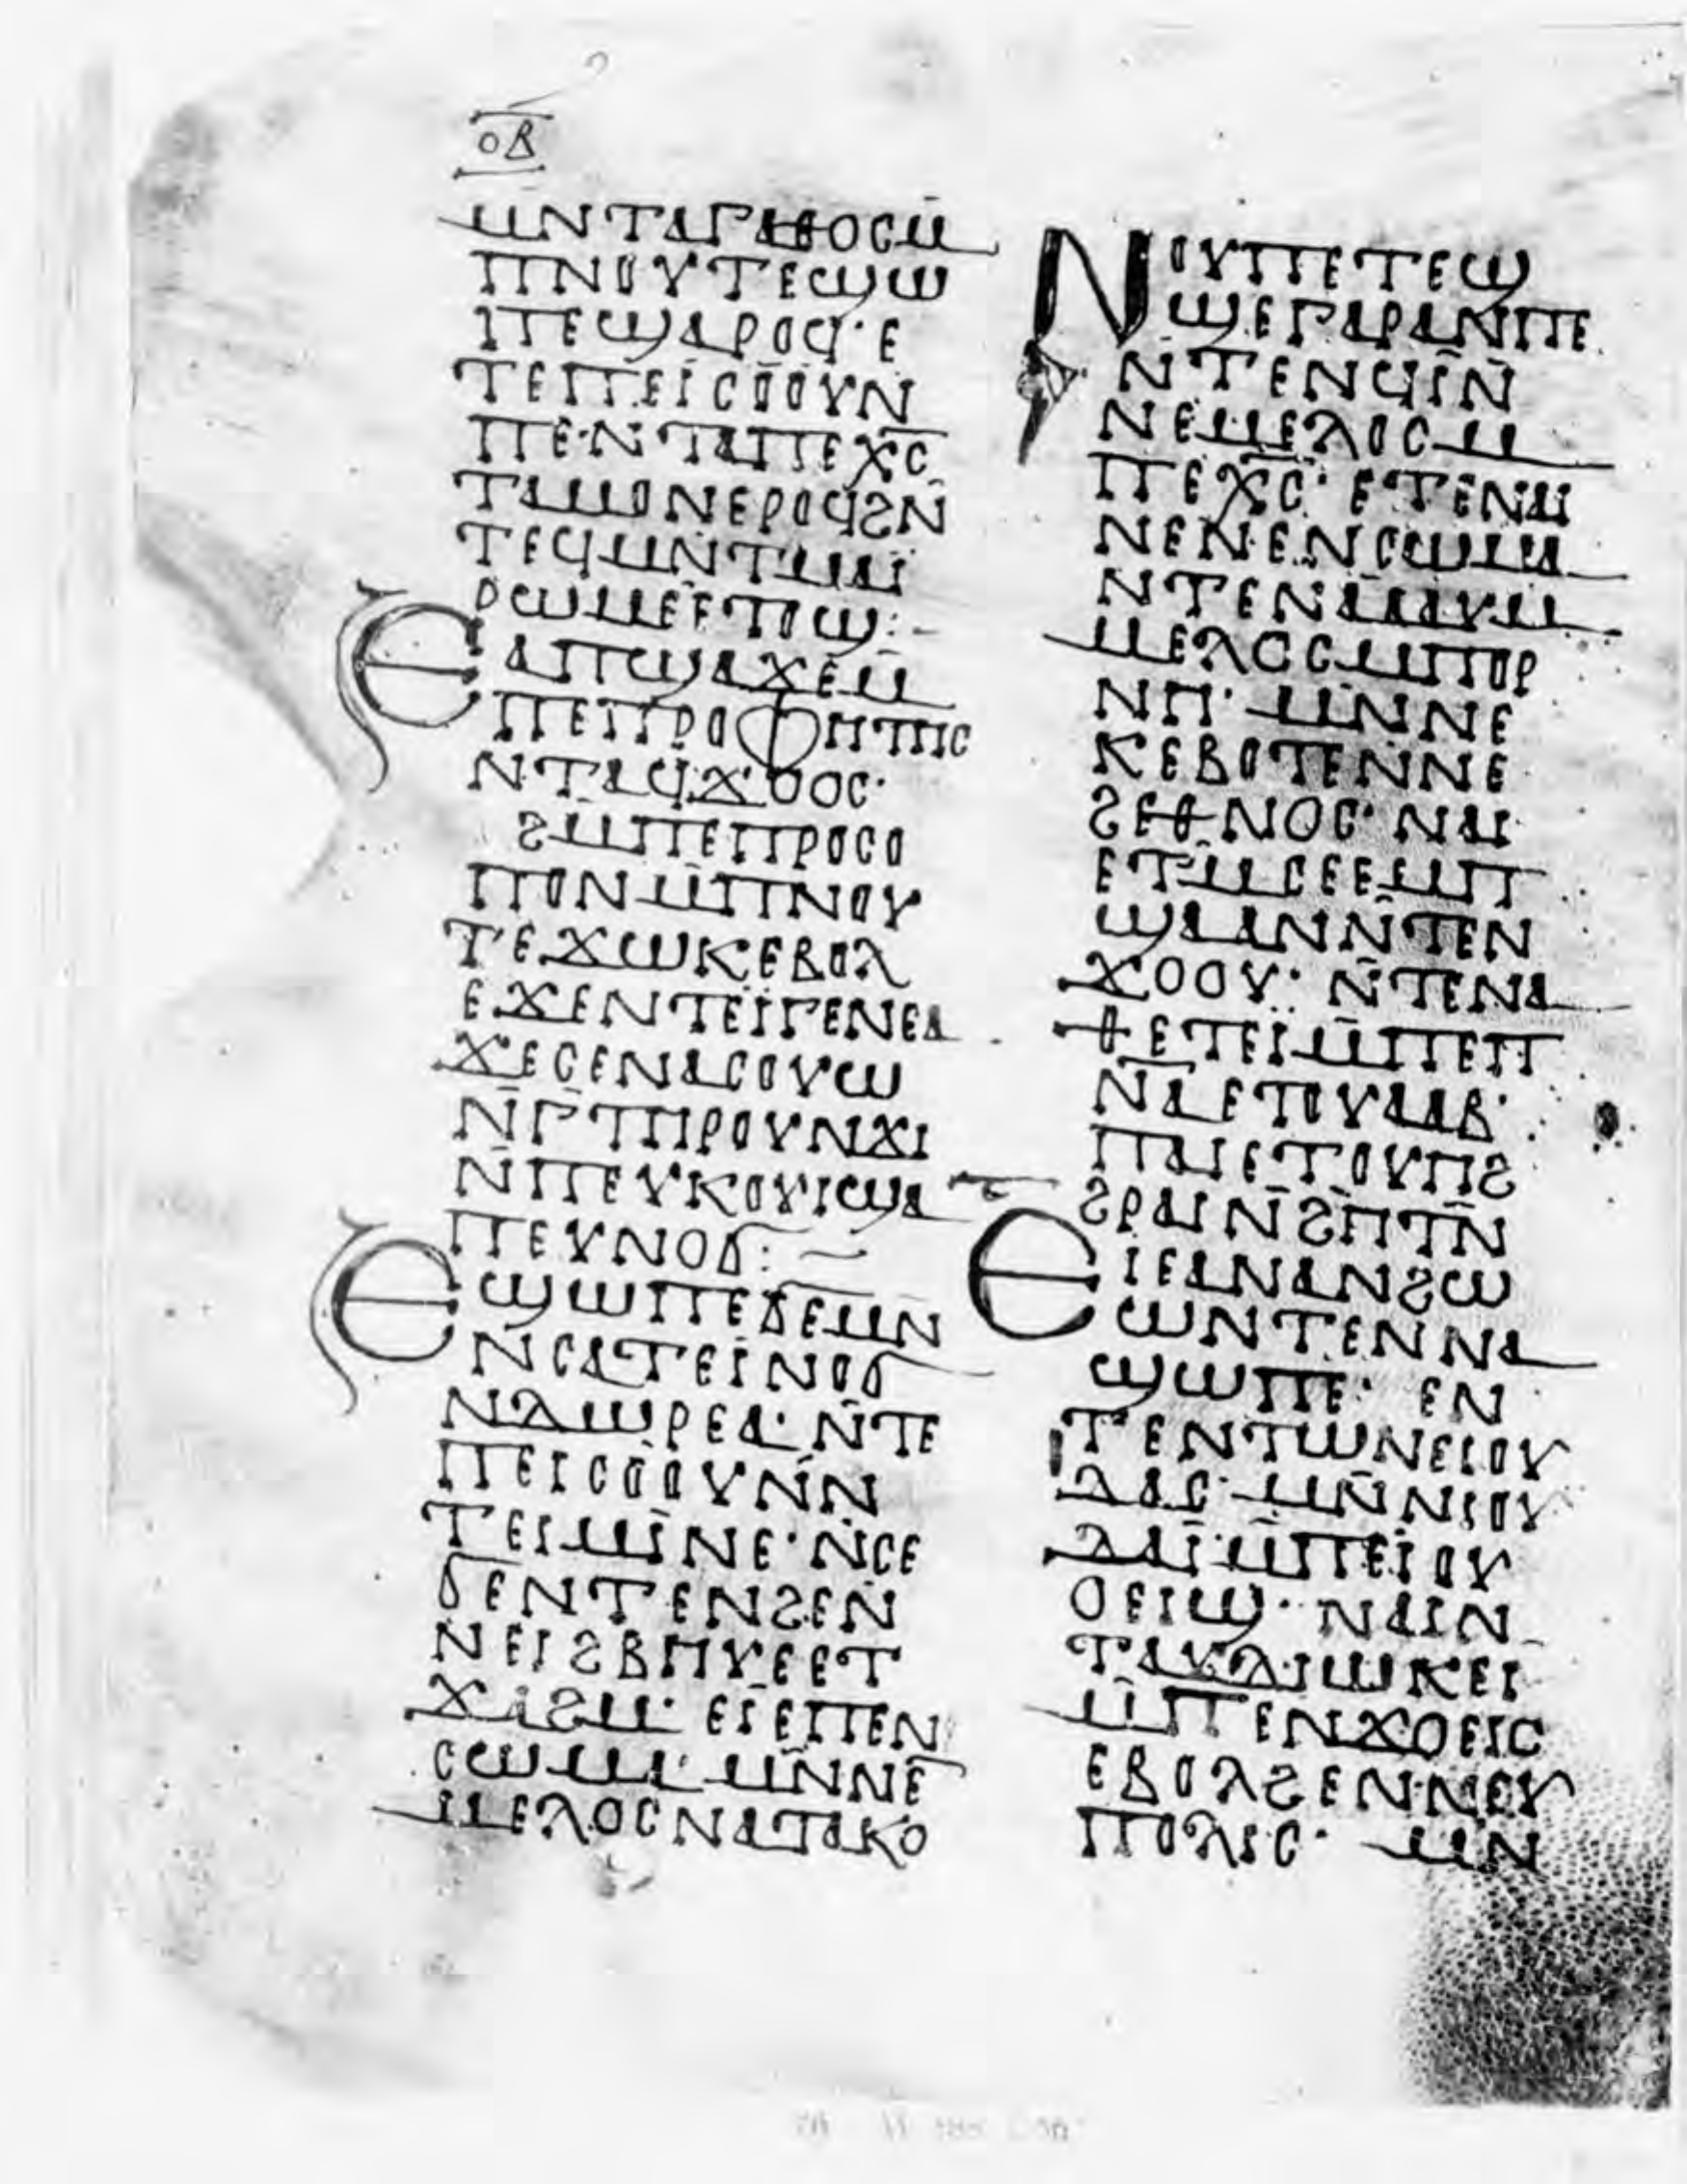 ⲟⲃ
ⲙⲛⲧⲁⲅⲁⲑⲟⲥⲙ̄
ⲡⲛⲟⲩⲧⲉϣⲱ
ⲡⲉϣⲁⲣⲟϥ· ⲉ
ⲧⲉⲡⲉⲓ̈ⲥⲟⲟⲩⲛ
ⲡⲉⲛⲧⲁⲡⲉⲭ̅ⲥ̅
ⲧⲁⲙⲟⲛⲉⲣⲟϥϩⲛ̄
ⲧⲉϥⲙⲛⲧⲙⲁⲓ̈
ⲣⲱⲙⲉⲉⲧⲟϣ:–
ⲉⲁⲡϣⲁϫⲉⲙ̄
ⲡⲉⲡⲣⲟⲫⲏⲧⲏⲥ
ⲛⲧⲁϥϫⲟⲟⲥ·
ϩⲙⲡⲉⲡⲣⲟⲥⲟ
ⲡⲟⲛⲙ̄ⲡⲛⲟⲩ
ⲧⲉϫⲱⲕⲉⲃⲟⲗ
ⲉϫⲉⲛⲧⲉⲓ̈ⲅⲉⲛⲉⲁ
ϫⲉⲥⲉⲛⲁⲥⲟⲩⲱ
ⲛ̄ⲅ̄ⲧⲏⲣⲟⲩⲛϫⲓ
ⲛ̄ⲡⲉⲩⲕⲟⲩⲓϣⲁ
ⲡⲉⲩⲛⲟϭ:–
ⲉϣⲱⲡⲉϭⲉⲙⲛ
ⲛ̄ⲥⲁⲧⲉⲓ̈ⲛⲟϭ
ⲛⲇⲱⲣⲉⲁ· ⲛ̄ⲧⲉ
ⲡⲉⲓⲥⲟⲟⲩⲛⲛ̄
ⲧⲉⲓⲙⲓⲛⲉ· ⲛ̄ⲥⲉ
ϭⲉⲛⲧⲉⲛϩⲉⲛ̄
ⲛⲉⲓϩⲃⲏⲩⲉⲉⲧ
ϫⲁϩⲙ· ⲉⲓ̈ⲉⲡⲉⲛ
ⲥⲱⲙⲁ· ⲙⲛ̄ⲛⲉ
ⲙⲉⲗⲟⲥⲛⲁⲧⲁⲕⲟ
ⲛⲟⲩⲡⲉⲧⲉϣ
ϣⲉⲅⲁⲣⲁⲛⲡⲉ
ⲛ̄ⲧⲉⲛϥⲓⲛ̄
ⲛⲉⲙⲉⲗⲟⲥⲙ̄
ⲡⲉⲭ̅ⲥ̅· ⲉⲧⲉⲛⲁⲓ
ⲛⲉⲛⲉⲛⲥⲱⲙⲁ
ⲛⲧⲉⲛⲁⲁⲩⲙ̄
ⲙⲉⲗⲟⲥⲙⲡⲟⲣ
ⲛⲏ· ⲙⲛ̄ⲛⲉ
ⲕⲉⲃⲟⲧⲉⲛⲛⲉ
ϩⲉⲑⲛⲟⲥ· ⲛⲁⲓ
ⲉⲧⲙ̄ⲥⲉⲉⲙⲡ
ϣⲁⲁⲛⲛ̄ⲧⲉⲛ
ϫⲟⲟⲩ· ⲛ̄ⲧⲉⲛⲁ
ⲑⲉⲧⲉⲓⲙ̄ⲡⲉⲡ
ⲛ̅ⲁ̅ⲉⲧⲟⲩⲁⲁⲃ·
ⲡⲁⲓⲉⲧⲟⲩⲏϩ
ϩⲣⲁⲓⲛ̄ϩⲏⲧⲛ̄
ⲉⲓⲉⲁⲛⲁⲛϩⲱ
ⲱⲛⲧⲉⲛⲛⲁ
ϣⲱⲡⲉ· ⲉⲛ
ⲧⲉⲛⲧⲱⲛⲉⲓⲟⲩ
ⲇⲁⲥ· ⲙⲛ̄ⲛⲓⲟⲩ
ⲇⲁⲓ̈ⲙ̄ⲡⲉⲓ̈ⲟⲩ
ⲟⲉⲓϣ· ⲛⲁⲓⲛ
ⲧⲁⲩⲇⲓⲱⲕⲉⲓ
ⲙ̄ⲡⲉⲛϫⲟⲉⲓⲥ
ⲉⲃⲟⲗϩⲉⲛⲛⲉⲩ
ⲡⲟⲗⲓⲥ· ⲙⲛ